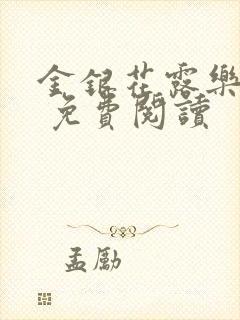 金銀花露樂
免費閱讀
孟勵